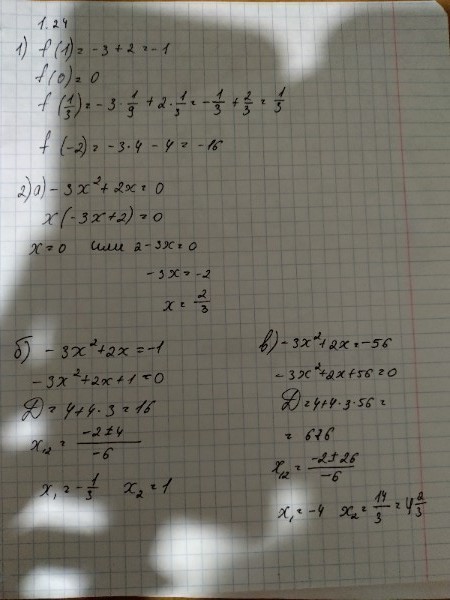 1.24
1) f(1) = -3+2 = -1
f(0) = 0
f(1/3) = -3·1/9 + 2·1/3 = -1/3 + 2/3 = 1/3
f(-2) = -3·4 - 4 = -16
2) а) -3x²+2x=0
x(-3x+2)=0
x=0 или 2-3x=0
-3x=-2
x = 2/3
б) -3x²+2x=-1
-3x²+2x+1=0
Д = 4+4·3=16
x₁,₂ = (-2±4)/(-6)
x₁ = -1/3 x₂ = 1
в) -3x²+2x=-56
-3x²+2x+56=0
Д=4+4·3·56=
= 676
x₁,₂ = (-2±26)/(-6)
x₁=-4 x₂ = 14/3 = 4 2/3